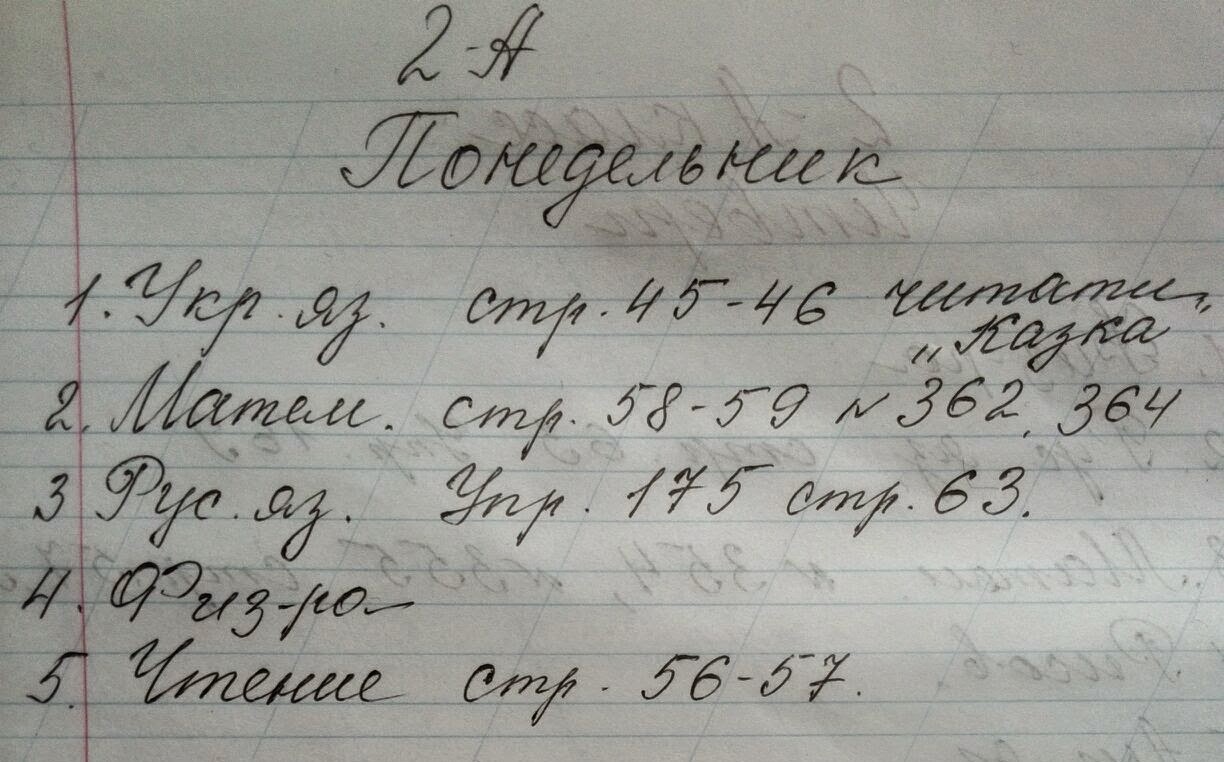 2-А
Понедельник
1. Укр. яз. стр. 45-46 читати
„Казка"
2. Матем. стр. 58-59 № 362, 364
3 Рус. яз. Упр. 175 стр. 63.
4. Физ-ра
5. Чтение стр. 56-57.